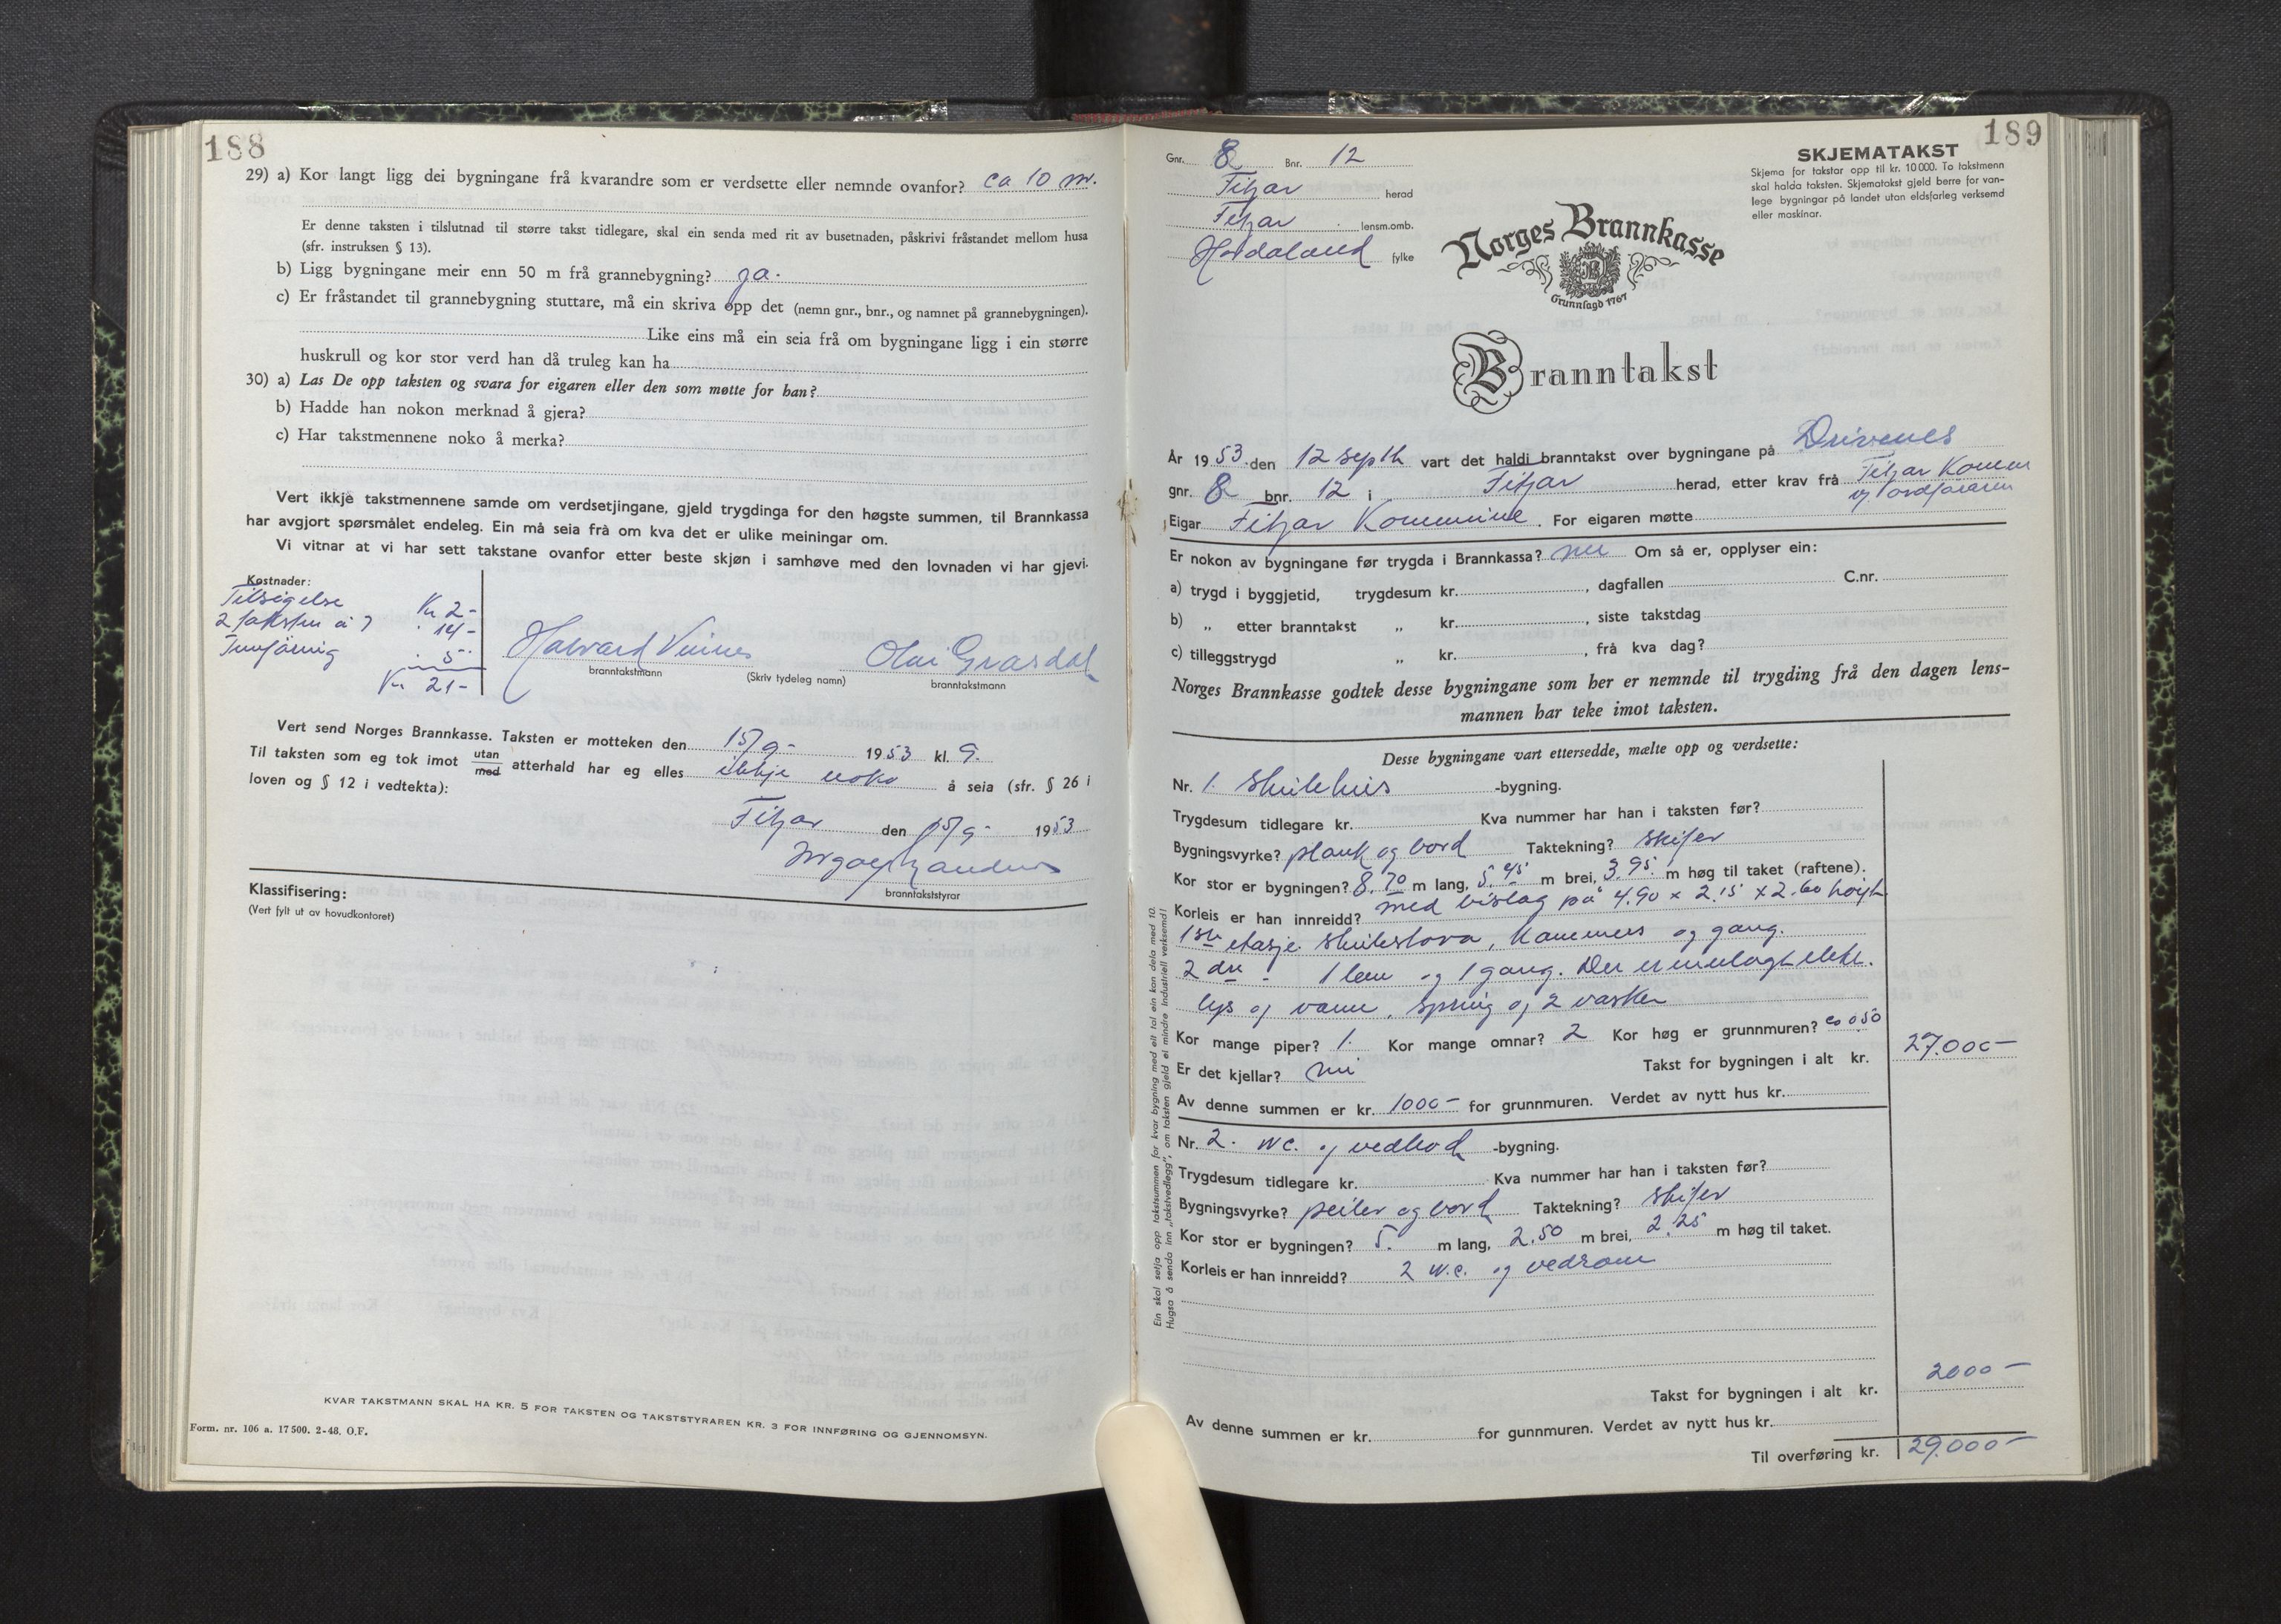 188
29) a) Kor langt ligg dei bygningane frå kvarandre som er verdsette eller nemnde ovanfor? ca 10 m.
Er denne taksten i tilslutnad til større takst tidlegare, skal ein senda med rit av busetnaden, påskrivi fråstandet mellom husa
(sfr. instruksen § 13).
b) Ligg bygningane meir enn 50 m frå grannebygning? ja.
c) Er fråstandet til grannebygning stuttare, må ein skriva opp det (nemn gnr., bnr., og namnet på grannebygningen).
Like eins må ein seia frå om bygningane ligg i ein større
huskrull og kor stor verd han då truleg kan ha
30) a) Las De opp taksten og svara for eigaren eller den som møtte for han?
b) Hadde han nokon merknad å gjera?
c) Har takstmennene noko å merka?
Vert ikkje takstmennene samde om verdsetjingane, gjeld trygdinga for den høgste summen, til Brannkassa
har avgjort spørsmålet endeleg. Ein må seia frå om kva det er ulike meiningar om.
Vi vitnar at vi har sett takstane ovanfor etter beste skjøn i samhøve med den lovnaden vi har gjevi.
Kostnader:
Tilseigelse Kr 2-
2 taksten á 7 14-
Innføring 5-
Kr 21-
Halvard Vinnes Olai Grasdal
branntakstmann (Skriv tydeleg namn) branntakstmann
Vert send Norges Brannkasse. Taksten er motteken den 15/9- 1953 kl. 9.
Til taksten som eg tok imot utan/med atterhald har eg elles ikkje noko å seia (sfr. § 26 i
loven og § 12 i vedtekta):
Fitjar den 15/9- 1953
branntakststyrar
Klassifisering:
(Vert fylt ut av hovudkontoret)
KVAR TAKSTMANN SKAL HA KR. 5 FOR TAKSTEN OG TAKSTSTYRAREN KR. 3 FOR INNFØRING OG GJENNOMSYN.
Form. nr. 106 a. 17500. 2-48. O.F.
189
Gnr. 8 Bnr. 12
Fitjar herad
Fitjar lensm.omb.
Hordaland fylke
SKJEMATAKST
Skjema for takstar opp til kr. 10000. To takstmenn
skal halda taksten. Skjematakst gjeld berre for van-
lege bygningar på landet utan eldsfarleg verksemd
eller maskinar.
Norges Brannkasse
Grunnlagd 1767
Branntakst
År 1953 den 12 septb vart det haldi branntakst over bygningane på Drivenes
gnr. 8 bnr. 12 i Fitjar herad, etter krav frå Fitjar Komm
v/ ordføraren
Eigar Fitjar Kommune. For eigaren møtte
Er nokon av bygningane før trygda i Brannkassa? nei Om så er, opplyser ein:
a) trygd i byggjetid, trygdesum kr. , dagfallen C.nr.
b) „ etter branntakst „ kr. , siste takstdag
c) tilleggstrygd „ kr. , frå kva dag?
Norges Brannkasse godtek desse bygningane som her er nemnde til trygding frå den dagen lens-
mannen har teke imot taksten.
Desse bygningane vart ettersedde, mælte opp og verdsette:
Nr. 1. Skulehus -bygning.
Trygdesum tidlegare kr. Kva nummer har han i taksten før?
Bygningsvyrke? plank og bord Taktekning? skifer
Kor stor er bygningen? 8.70 m lang, 5.45 m brei, 3.95. m høg til taket (raftene).
med bislag på 4.90 x 2.15 x 2.60 høgt
Korleis er han innreidd?
1ste etasje skulestova, Kammers og gang.
2 dre - 1 lem og 1 gang. Der er innlagt elekt.
lys og vann, spring og 2 vasker
Kor mange piper? 1. Kor mange omnar? 2 Kor høg er grunnmuren? ca 0.50
Er det kjellar? nei Takst for bygningen i alt kr. 27.000-
Av denne summen er kr. 1000- for grunnmuren. Verdet av nytt hus kr.
Nr. 2. wc. og vedbod -bygning.
Trygdesum tidlegare kr. Kva nummer har han i taksten før?
Bygningsvyrke? peiler og bord Taktekning? skifer
Kor stor er bygningen? 5. m lang, 2.50 m brei, 2.25 m høg til taket.
Korleis er han innreidd? 2 w.c. og vedrom
Takst for bygningen i alt kr. 2000-
Av denne summen er kr. for gunnmuren. Verdet av nytt hus kr.
Til overføring kr. 29.000-
Ein skal setja opp takstsummen for kvar bygning med eit tal ein kan dela med 10.
Hugsa å senda inn „takstvedlegg", om taksten gjeld ei mindre industriell verksemd!